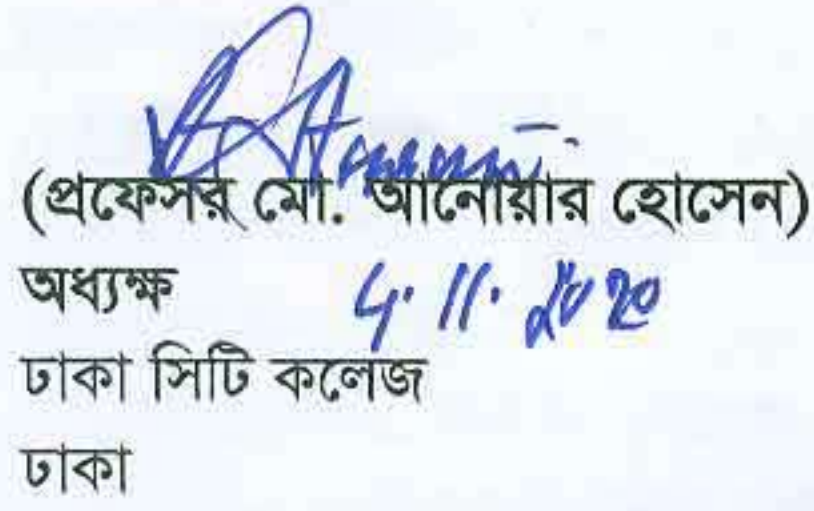 (প্রফেসর মো. আনোয়ার হোসেন)
অধ্যক্ষ
4.11.2020
ঢাকা সিটি কলেজ
ঢাকা